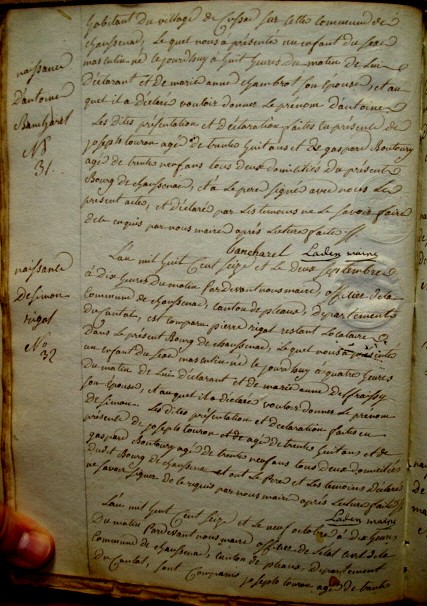 habitant du village de Cussac sur cette commune de
chaussenac, le quel nous a présenté un enfant du sexe
masculin né le jourdhuy à huit heures du matin de Lui
Déclarant et de marie anne chambrot son épouse, et au
quel il a déclaré vouloir donner le prénom d'antoine
Les dites présentation et déclaration faites en présence de
joseph touron agé de trente huit ans et de gaspar Boutoury
agé de trente neuf ans tous deux domiciliés du présent
Bourg de chaussenac, et a Le pere signé avec nous Le
present acte, et déclaré par Les temoins ne Le savoir faire
de ce enquis par nous maire après Lecture faite
bancharel Laden maire
naissance
D'antoine
Bancharel
No
31.
L'an mil huit Cent Seize et Le deux Septembre
à Dix heures du matin Pardevant nous maire, officier de la
Commune de chaussenac, canton de pleaux, Département
du Cantal, est comparu pierre rigal restant Locataire
Dans Le présent Bourg de chaussenac, Le quel nous a présenté
un enfant du sexe masculin né Le jourdhuy à quatre heures
du matin de Lui déclarant et de marie anne
son épouse, et au quel il a déclaré vouloir donner Le prénom
de Simon. Les dites présentation et declaration faites en
présence de joseph touron agé de trente huit ans et de
gaspard Boutoury agé de trente neuf ans tous deux domiciliés
dudit Bourg de chaussenac et ont Le Pere et Les temoins déclaré
ne savoir signer de ce requis par nous maire après Lecture faite
Laden maire
naissance
De Simon
rigal
No
32
L'an mil huit Cent Seize et Le neuf octobre à dix heures
Du matin Pardevant nous maire officier de L'etat civil de la
Commune de chaussenac, canton de pleaux, département
du Cantal, sont Comparus joseph touron agé de trente